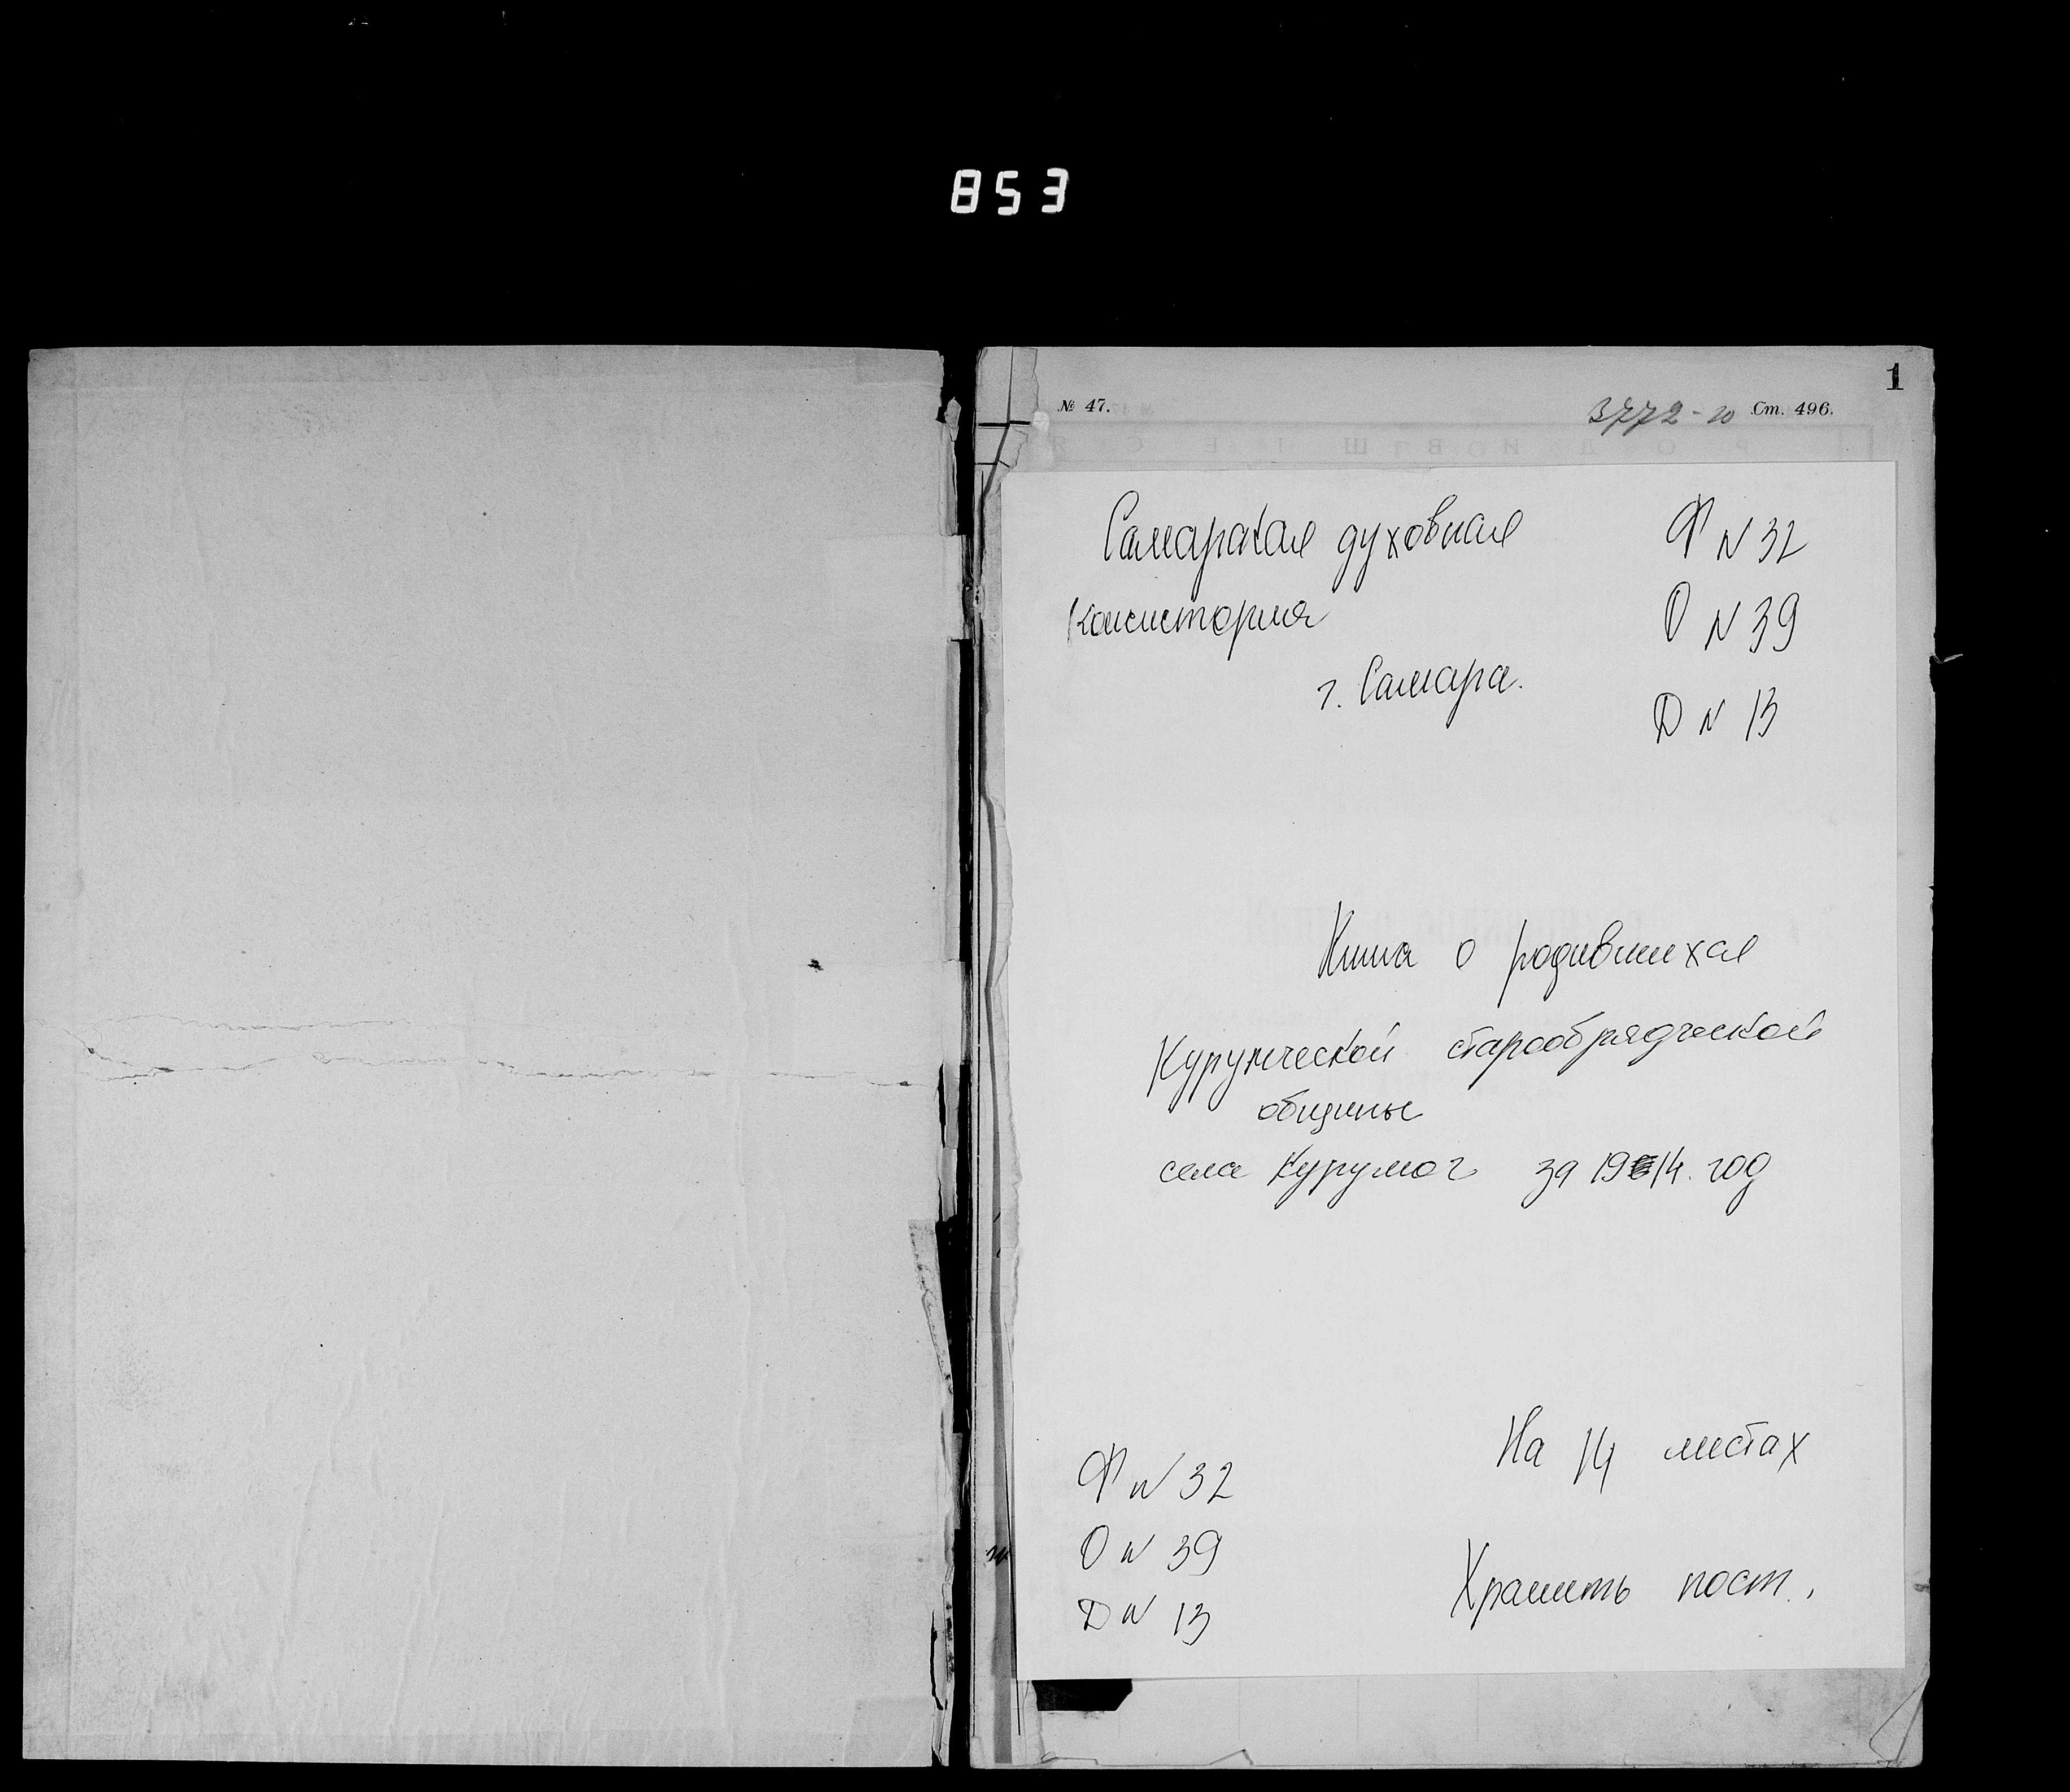 853
1
№ 47.
3772-20 Ст. 496.
Самарская духовная Ф N 32
консистория О N 39
г. Самара.
Д N 13
Книга о родившихся
Курумческой старообрядческой
общины
села Курумоч за 1914. год
На 14 листах
Ф N 32
О N 39
Хранить пост.
Д N 13